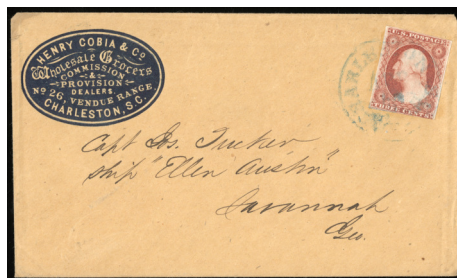 HENRY COBIA & Co
Wholesale Grocers
COMMISSION
&
PROVISION
DEALERS.
No 26, VENDUE RANGE,
CHARLESTON, S.C.
U.S. POSTAGE
THREE CENTS
Capt Js. Tucker
ship "Ellen Austin"
Savannah
Geo.